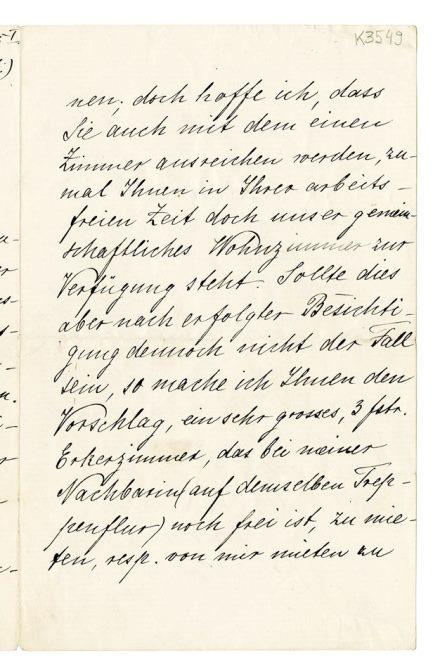 K3549
nen; doch hoffe ich, dass
Sie auch mit dem einen
Zimmer ausreichen werden, zu-
mal Ihnen in Ihrer arbeits-
freien Zeit doch unser gemein-
schaftliches Wohnzimmer zur
Verfügung steht. Sollte dies
aber nach erfolgter Besichti-
gung dennoch nicht der Fall
sein, so mache ich Ihnen den
Vorschlag, ein sehr grosses, 3 fstr.
Erkerzimmer, das bei meiner
Nachbarin (auf demselben Trep-
penflur) noch frei ist, zu mie-
ten, resp. von mir mieten zu